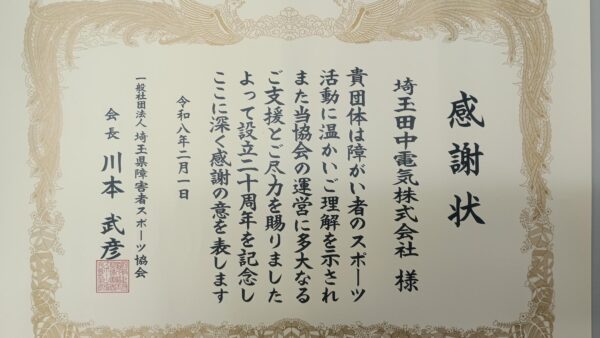 感謝状
埼玉田中電気株式会社 様
貴団体は障がい者のスポーツ
活動に温かいご理解を示され
また当協会の運営に多大なる
ご支援とご尽力を賜りました
よって設立二十周年を記念し
ここに深く感謝の意を表します
令和八年二月一日
一般社団法人 埼玉県障害者スポーツ協会
会長 川本 武彦